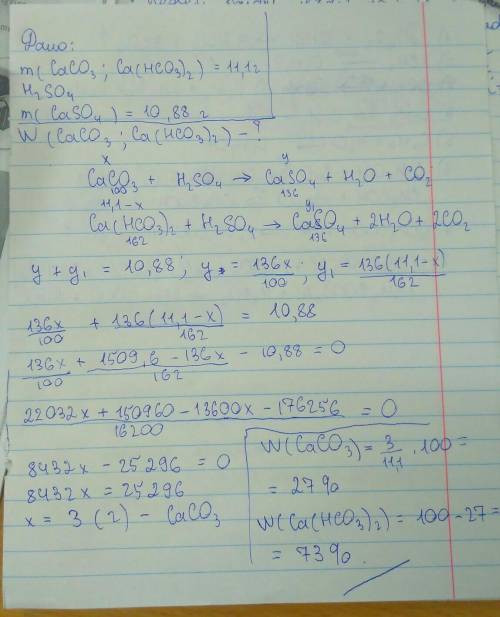 Дано:
m(CaCO₃; Ca(HCO₃)₂) = 11,1г
H₂SO₄
m(CaSO₄) = 10,88 г
W(CaCO₃; Ca(HCO₃)₂) - ?
x y
CaCO₃ + H₂SO₄ → CaSO₄ + H₂O + CO₂
100 136
11,1-x y₁
Ca(HCO₃)₂ + H₂SO₄ → CaSO₄ + 2H₂O + 2CO₂
162 136
y + y₁ = 10,88; y = 136x/100; y₁ = 136(11,1-x)/162
136x/100 + 136(11,1-x)/162 = 10,88
136x/100 + 1509,6 - 136x/162 - 10,88 = 0
22032x + 150960 - 13600x - 176256/16200 = 0
8432x - 25296 = 0
8432x = 25296
x = 3 (г) - CaCO₃
W(CaCO₃) = 3/11,1 · 100 =
= 27%
W(Ca(HCO₃)₂) = 100 - 27 =
= 73%